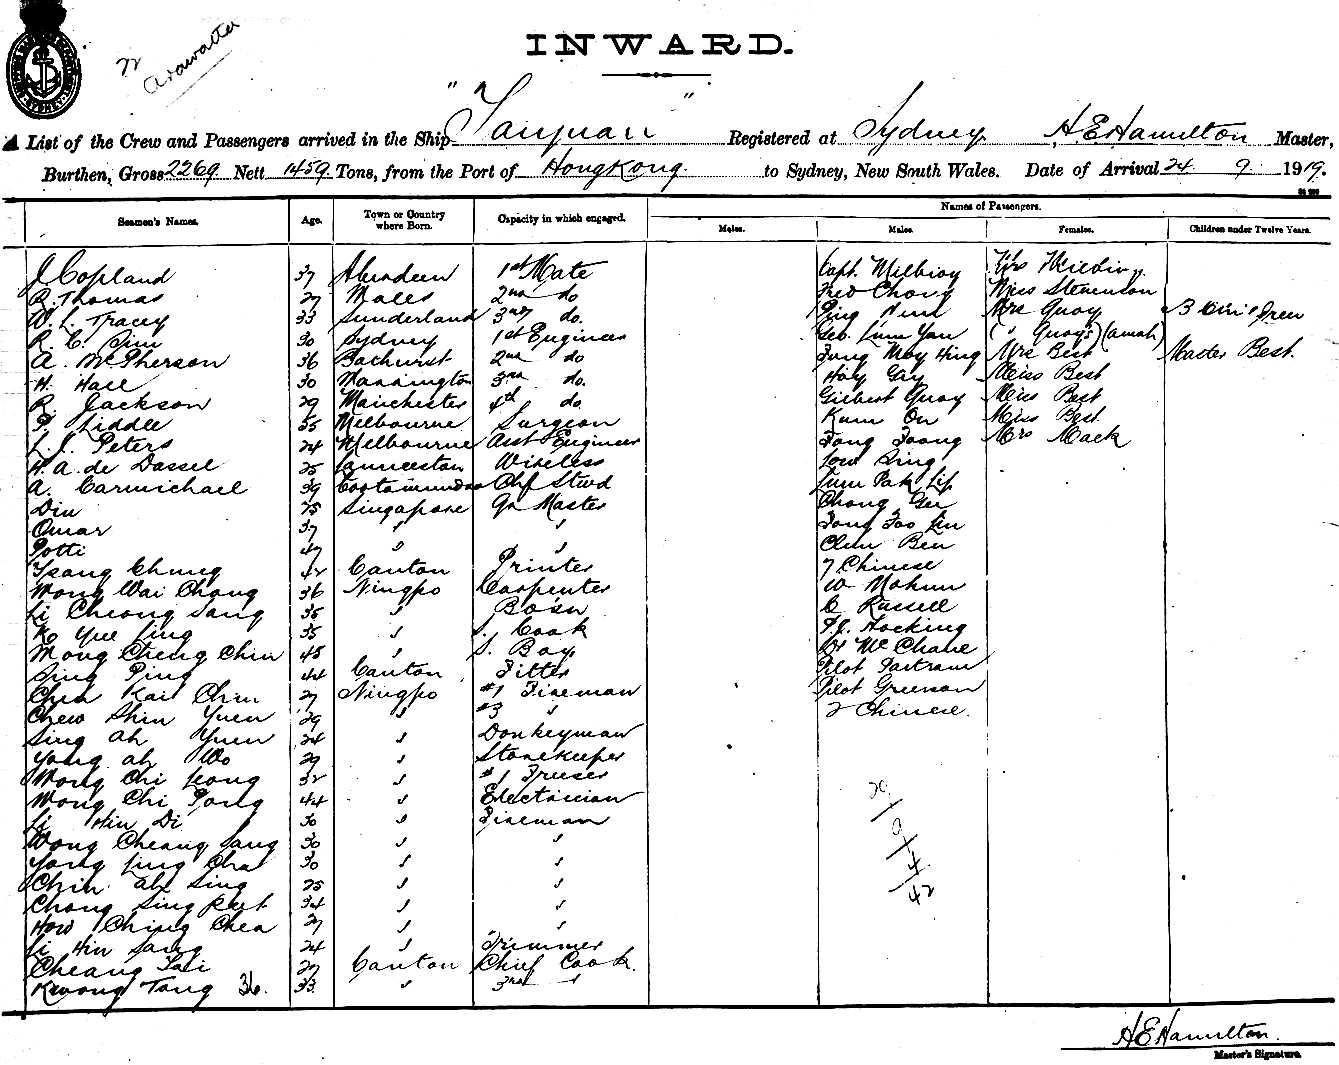 INWARD.
A List of the Crew and Passengers arrived in the Ship "Taiyuan" Registered at Sydney, H E Hamilton Master,
Burthen, Gross 2269 Nett 1459 Tons, from the Port of HongKong to Sydney, New South Wales. Date of Arrival 24 9 1919.
Names of Passengers.
Seamen's Names. Age. Town or Country where Born. Capacity in which engaged. Males. Males. Females. Children under Twelve Years.
J Copland 37 Aberdeen 1st Mate Capt. Mrs
R. Thomas 27 Wales 2nd do Fred Chong Miss Stevenson
W. L. Tracey 33 Sunderland 3rd do. Ping Mrs Quoy 3 Children
R. C. 30 Sydney 1st Engineer Geo. Lum Yan ( " Quoy's) (amah)
A. McPherson 36 Bathurst 2nd do Fong May Hing Mrs Best Master Best.
H. Hall 30 Mannington 3rd do. Hoy Miss Best
R. Jackson 29 Manchester 4th do. Gilbert Quoy Miss Best
Liddle 55 Melbourne Surgeon Kum On Miss Best
L. J. Peters 24 Melbourne Asst Engineer Fong Mrs Mack
H. A. de Dassel 25 Launceston Wireless Low Sing
A. Carmichael 39 Cootamundra Chf Stwd Lum Pak Lip
Din 25 Singapore Qr Master Chong Gee
Omar 37 " " Fong Foo
Potti 47 " " Chun Ben
Tsang Chung 42 Canton Printer 7 Chinese
Wong Wai Chong 36 Ningpo Carpenter W Mahun
Li Cheong Sang 35 " Bosn C Russell
Ko Yue Ling 35 " S. Cook Hocking
Wong Cheng Chin 45 " S. Boy McChane
Sing Ping 44 Canton Fitter Pilot
Chin Kai Chin 27 Ningpo #1 Fireman Pilot Greerson
Chew Shin Yuen 29 " #3 " 2 Chinese.
Sing Ah Yuen 24 " Donkeyman
Yong Ah Wo 29 " Storekeeper
Wong Chi Leong 32 " #1 Greaser
Wong Chi Pong 44 " Electrician
Li Hin Di 30 " Fireman
Wong Cheang Sang 30 " "
Yong Ling Cha 30 " "
Chin Ah Sing 25 " "
Chong Sing 34 " "
How Ching Chea 27 " "
Li Hin Sang 24 " Trimmer
Cheang Tai 27 Canton Chief Cook.
Kwong Tong 36. 33 " 3rd "
29
9
4
42
H E Hamilton.
Master's Signature.